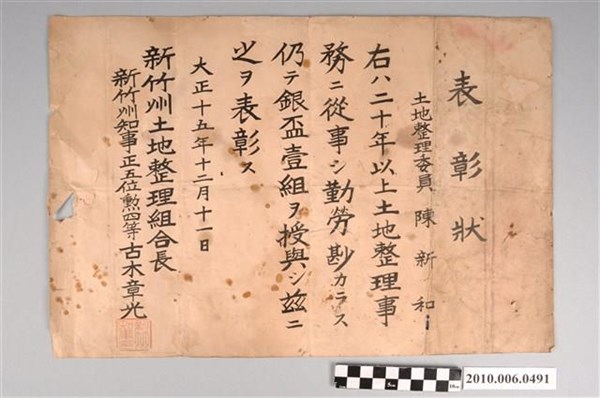 表彰狀
土地整理委員 陳新和
右ハ二十年以上土地整理事
務ニ從事シ勤勞尠カラス
仍テ銀盃壹組ヲ授與シ茲ニ
之ヲ表彰ス
大正十五年十二月十一日
新竹州土地整理組合長
新竹州知事正五位勲四等古木章光
2010.006.0491